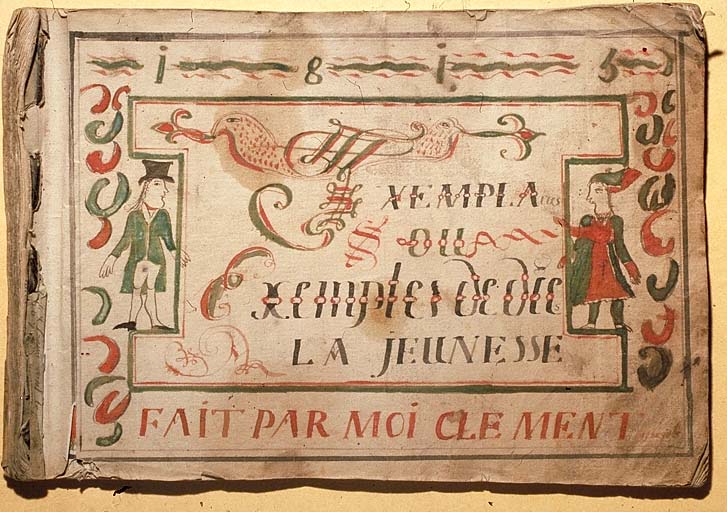 1815
EXEMPLArus
OU
Exemples dedié
LA JEUNESSE
FAIT PAR MOI CLEMENT